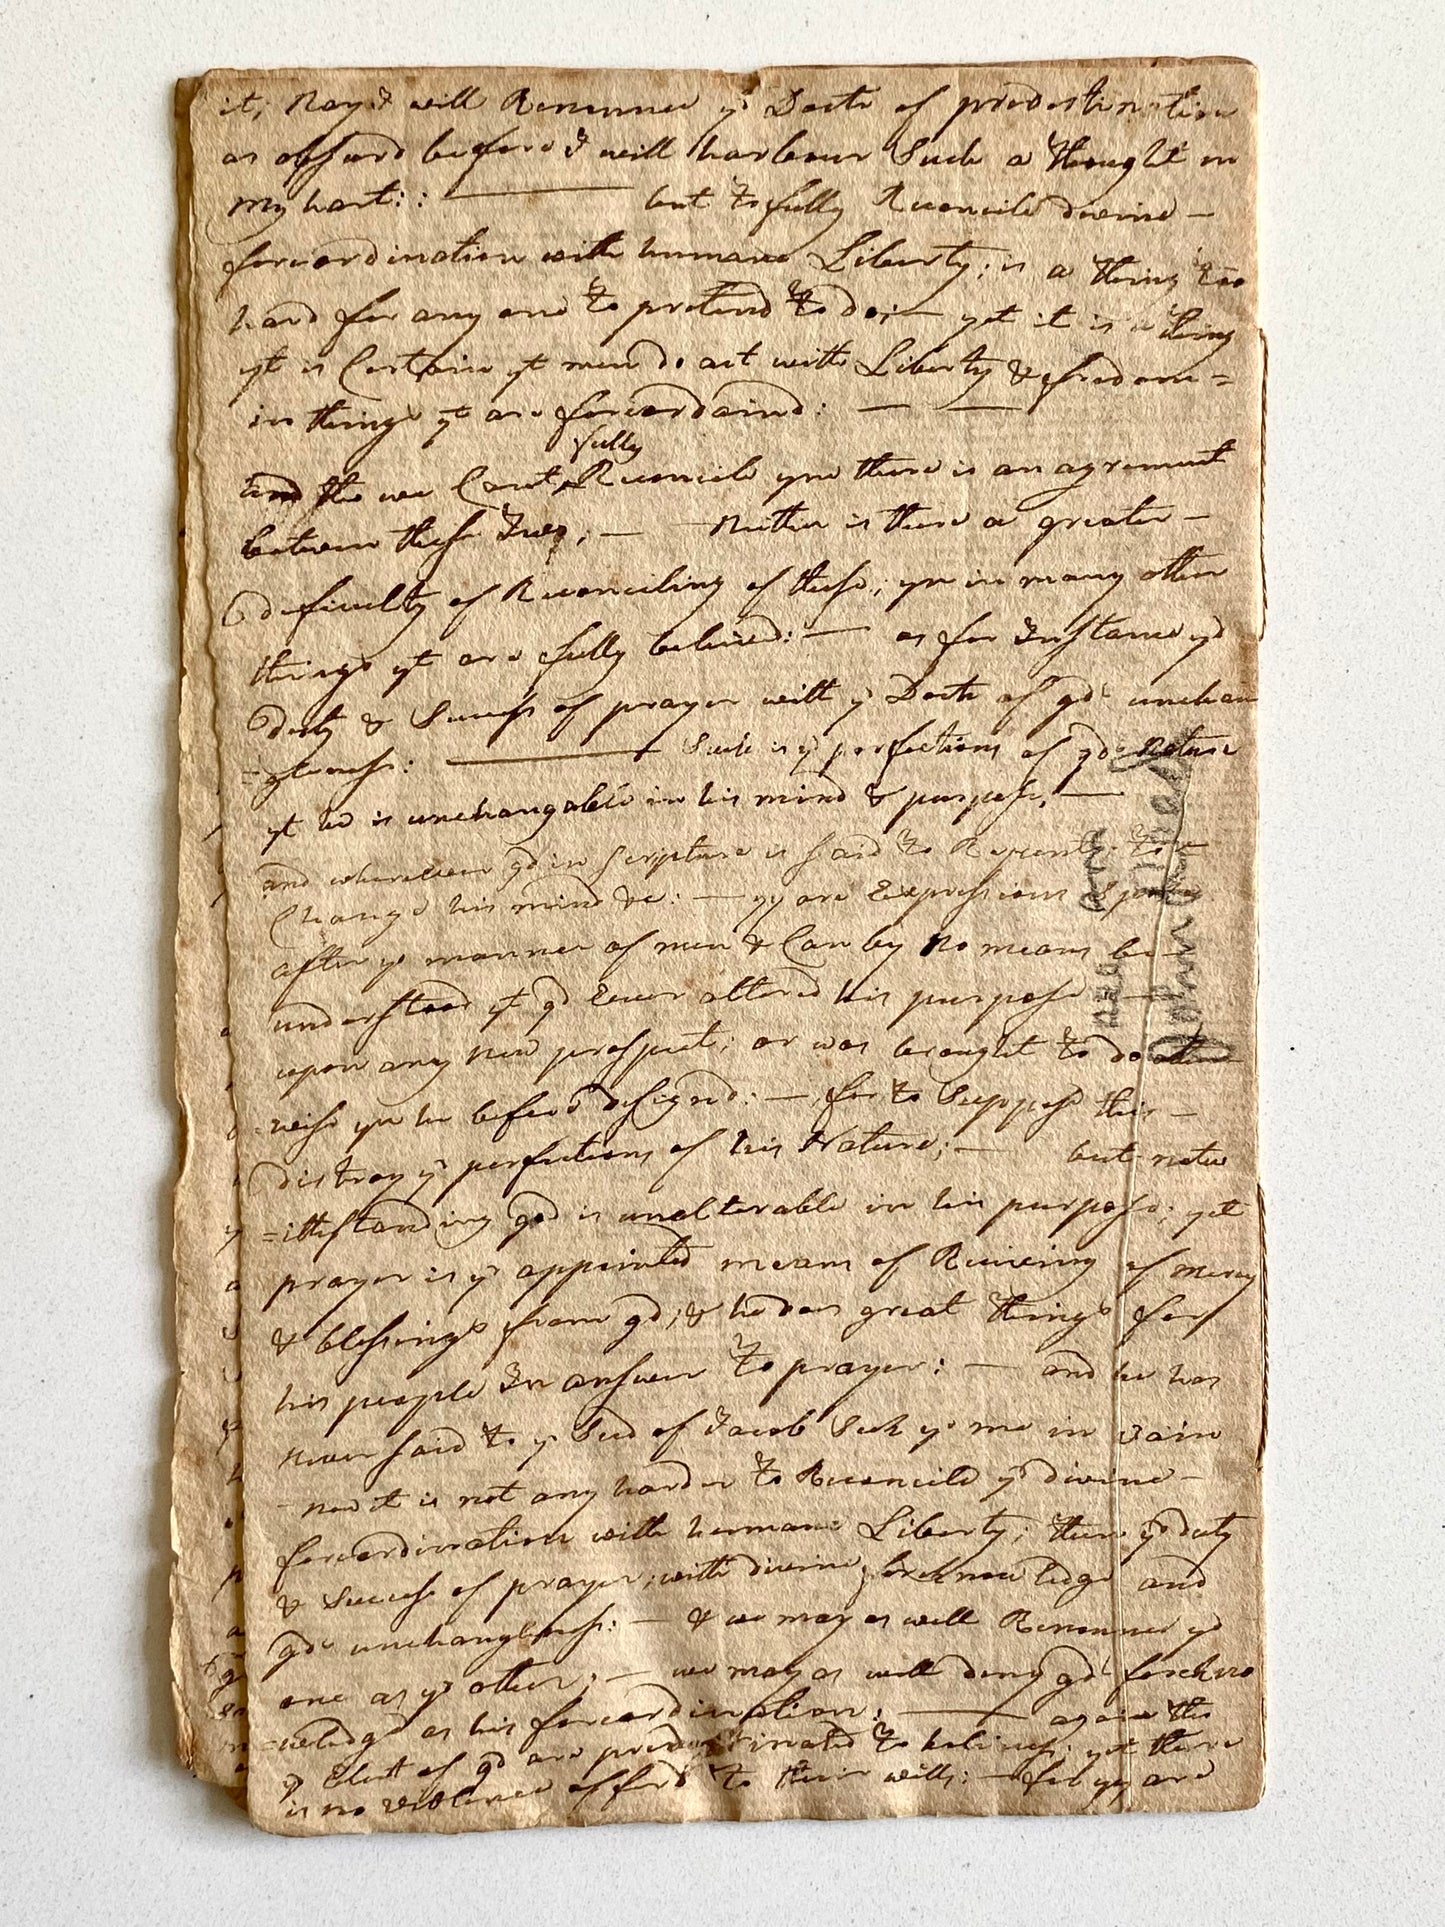 it; Nay I will Renounce ye Doctr of predestination
as absurd before I will harbour Such a thought in
my hart:: — but to fully Reconcile divine —
foreordination with humane Liberty; is a thing too
hard for any one to pretend to do; — yet it is a thing
yt is Certain yt men do act with Liberty & fredom =
in things yt are foreordaind: — —
fully
and tho we Cant Reconcile ym there is an agrement
between these Two; — Neither is there a greater —
dificulty of Reconciling of these; yn in many other
things yt are fully belived: — as for Instance ye
duty & Success of prayer with ye Doctr of gds unchan
=gleness: — Such is ye perfections of gds Nature
yt he is unchangable in his mind & purpose, —
and wherever gd in Scripture is said to Repent: to
Change his mind &c: — yy are Expressions
after ye manner of men & Can by no means be
understood yt gd Ever altered his purpose —
upon any new prospect; or was brought to do other
=wise yn he before designd: — for to Suppose this —
distroy ye perfections of his Nature; — but notw
=ithstanding god is unalterable in his purpose; yet
prayer is ye appointed means of Reciving of mercy
& blessings from gd; & he does great things for
his people In answer to prayer: — and he has
never said to ye Seed of Jacob Seek ye me in vain
- nor it is not any harder to Reconcile ye divine —
foreordination with humane Liberty; then ye duty
& Success of prayer; with divine foreknowledge and
gds unchangleness: — & we may as well Renounce ye
one as ye other; — we may as well deny gds foreknow
=weledge as his foreordination: — again tho
ye Elect of gd are predestinated to holiness; yet there
is no violence offerd to their wills: — for yy are